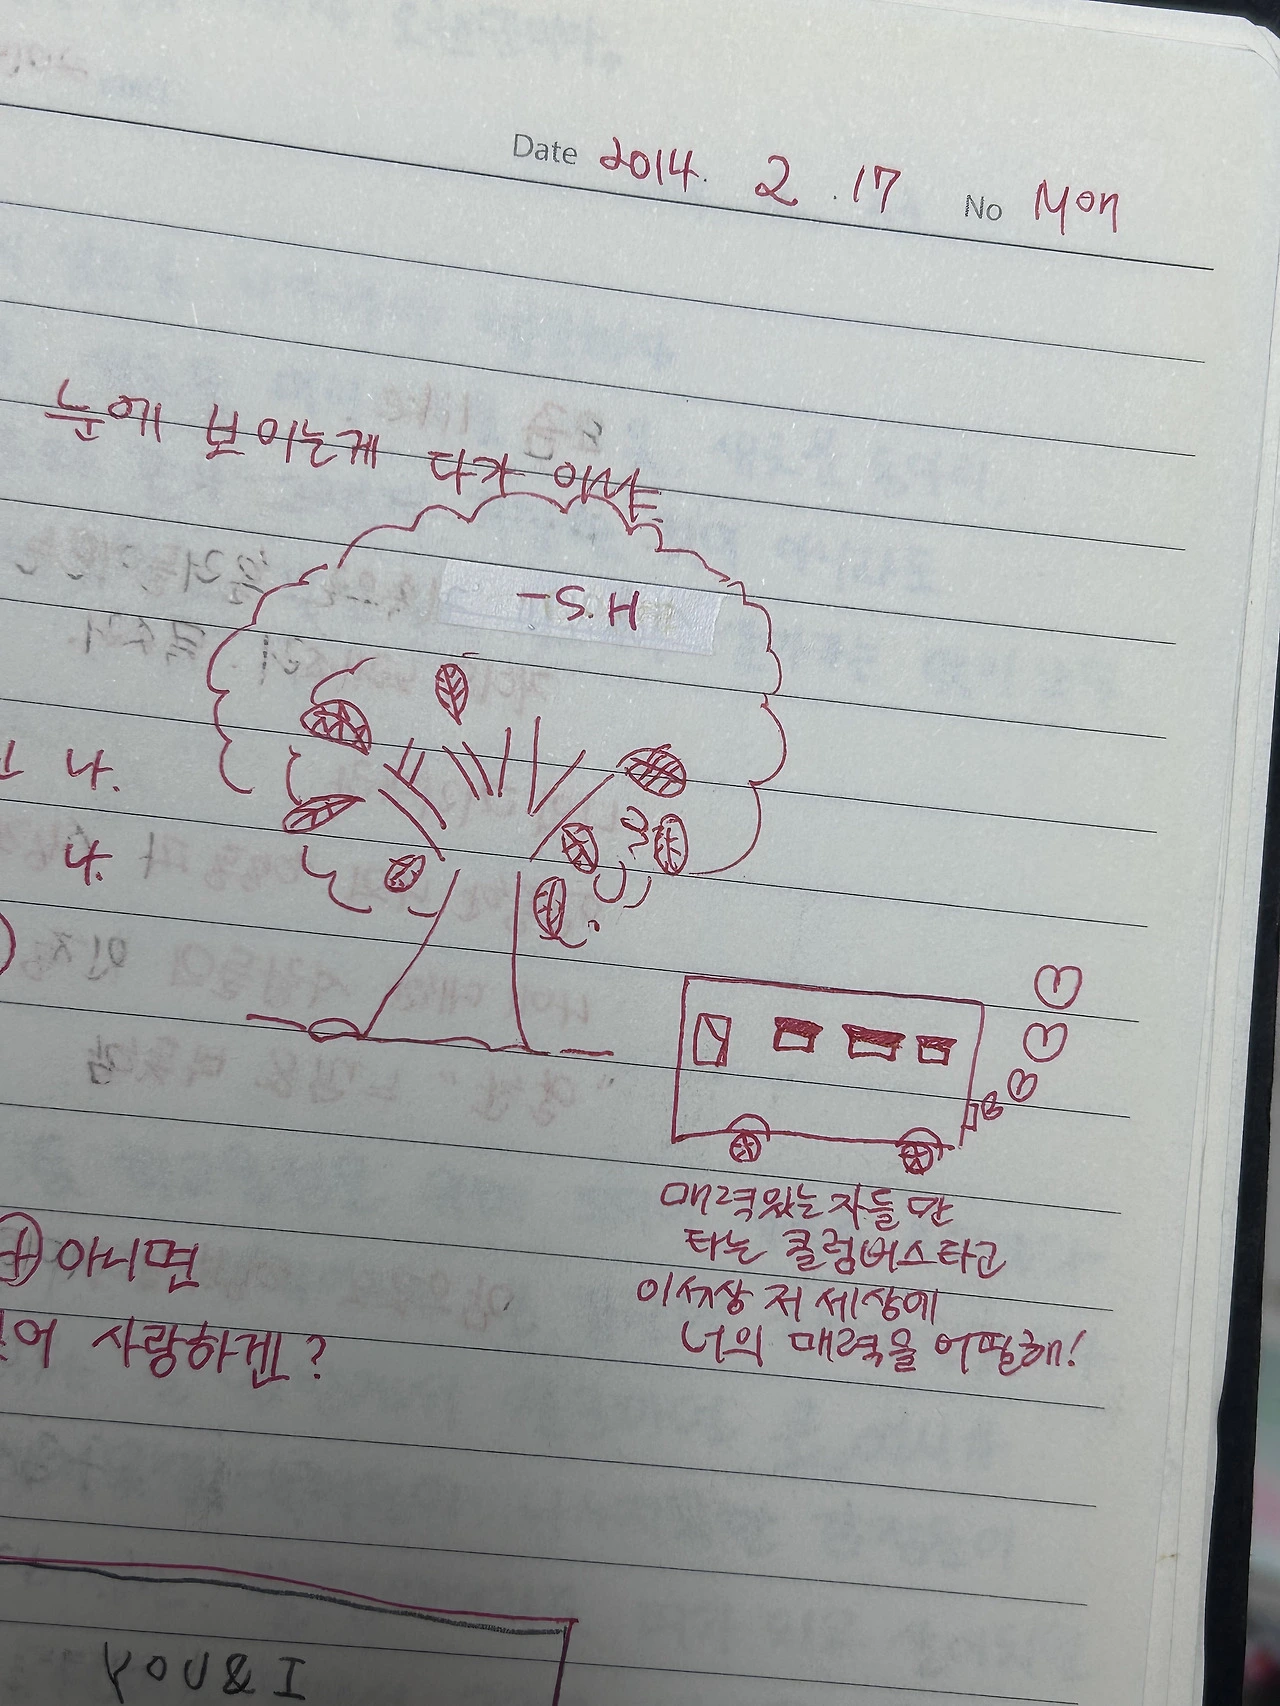 Date 2014. 2. 17 No Mon
눈에 보이는게 다가 아냐
-S.H
나.
나.
아니면
어 사랑하겐?
매력있는자들만
타는 콜럼버스타고
이세상 저 세상에
너의 매력을 어필해!
YOU & I